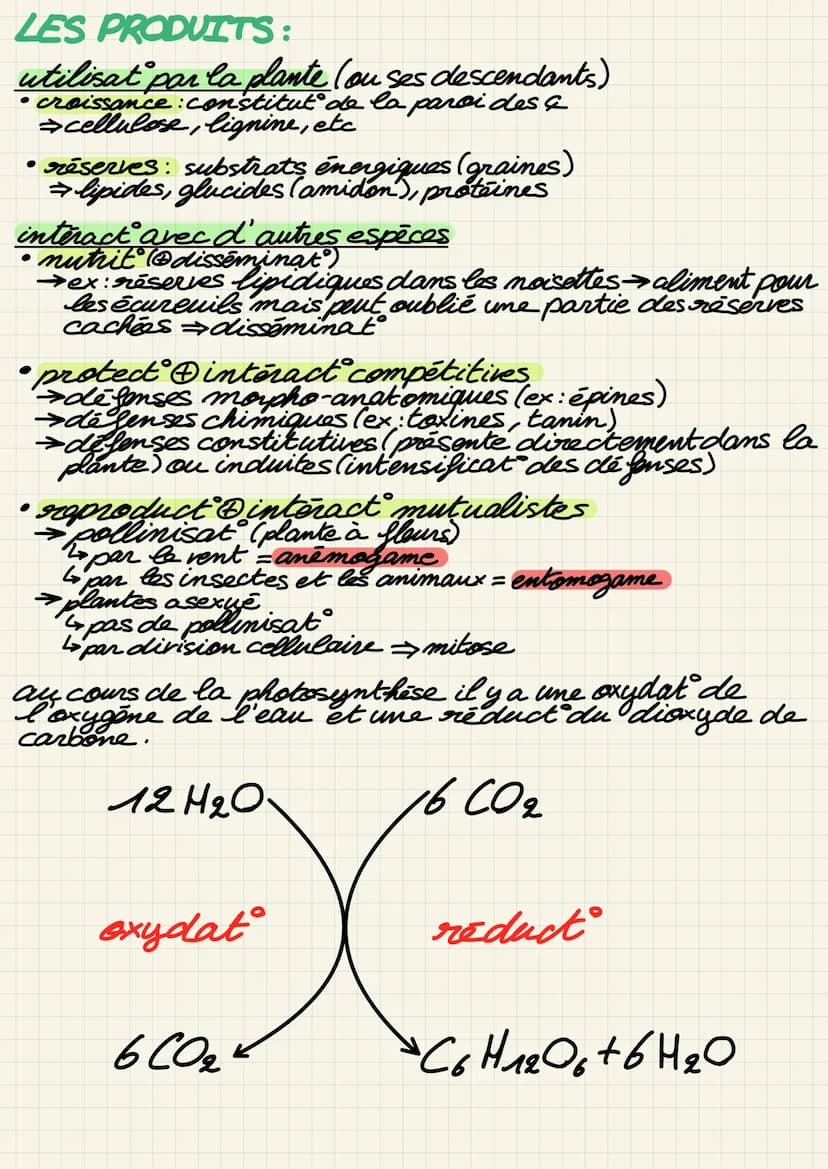 LES PRODUITS :
utilisat° par la plante (ou ses descendants)
• croissance : constitut° de la paroi des
⇒ cellulose, lignine, etc
• réserves : substrats énergiques (graines)
⇒ lipides, glucides (amidon), protéines
intéract° avec d'autres espèces
• nutrit° (⊕ disséminat°)
→ ex : réserves lipidiques dans les noisettes → aliment pour
les écureuils mais peut oublié une partie des réserves
cachées ⇒ disséminat°
• protect° ⊕ intéract° compétitives
→ défenses morpho-anatomiques (ex : épines)
→ défenses chimiques (ex : toxines, tanin)
→ défenses constitutives (présente directement dans la
plante) ou induites (intensificat° des défenses)
• reproduct° ⊕ intéract° mutualistes
→ pollinisat° (plante à fleurs)
↳ par le vent = anémogame
↳ par les insectes et les animaux = entomogame
→ plantes asexué
↳ pas de pollinisat°
↳ par division cellulaire ⇒ mitose
au cours de la photosynthèse il y a une oxydat° de
l'oxygène de l'eau et une réduct° du dioxyde de
carbone.
12 H2O 6 CO2
oxydat° réduct°
6 CO2 C6H12O6 + 6 H2O